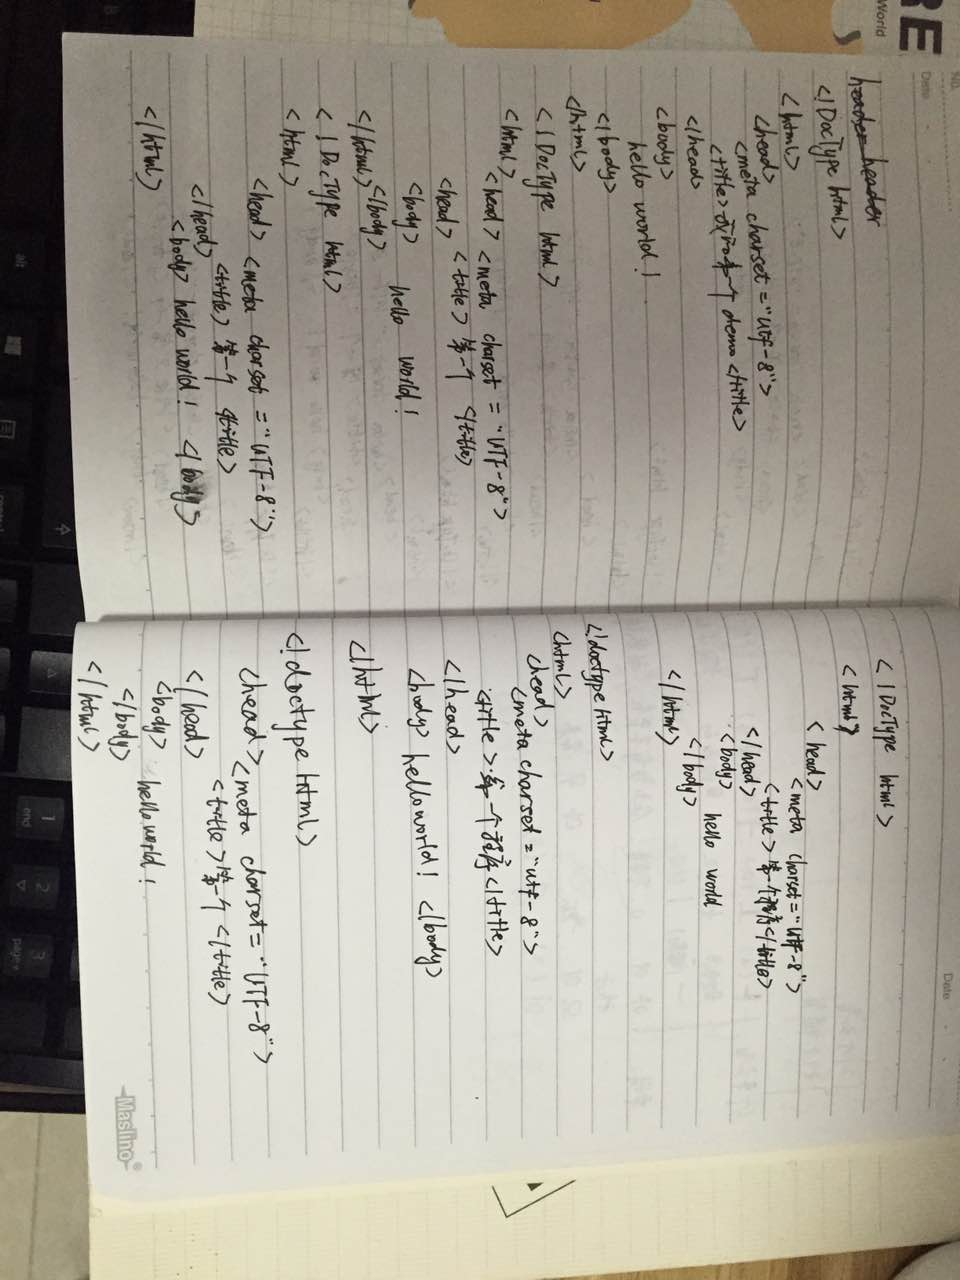 RE
World
No.
Date
header header
<!DocType html>
<html>
<head>
<meta charset="utf-8">
<title> demo</title>
</head>
<body>
hello world!
</body>
</html>
<!DocType html>
<html>
<head> <meta charset="UTF-8">
<title>第一个</title>
<head>
<body> hello world!
</body>
</html>
<!DocType html>
<html>
<head> <meta charset="UTF-8">
<title>第一个<title>
</head>
<body> hello world! </body>
</html>
Date
<!DocType html>
<html>
<head>
<meta charset="UTF-8">
<title>第一个程序</title>
</head>
<body> hello world
</body>
</html>
<!doctype html>
<html>
<head>
<meta charset="utf-8">
<title>第一个程序</title>
</head>
<body> helloworld! </body>
</html>
<!doctype html>
<head> <meta charset="UTF-8">
<title>第一个</title>
</head>
<body> helloworld!
</body>
</html>
Maslino
alt
1
end
2
3